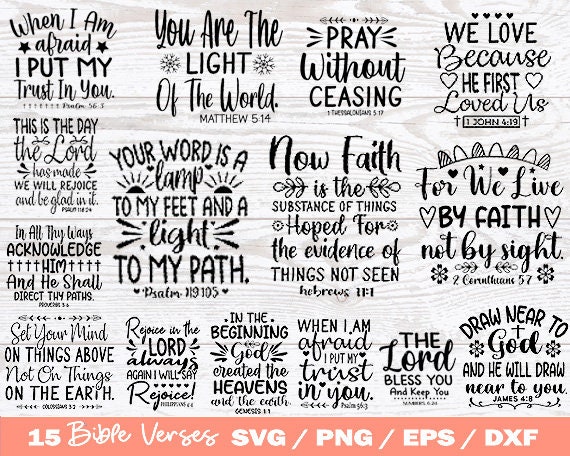 When I Am
afraid
I PUT MY
Trust In You.
Psalm 56:3
You Are The
LIGHT
Of The World.
MATTHEW 5:14
PRAY
Without
CEASING
1 THESSALONIANS 5:17
WE LOVE
Because
HE FIRST
Loved Us
1 JOHN 4:19
THIS IS THE DAY
the Lord
has made
WE WILL REJOICE
and be glad in it.
PSALM 118:24
YOUR WORD IS A
lamp
TO MY FEET AND A
light
TO MY PATH.
Psalm 119:105
Now Faith
is the
SUBSTANCE OF THINGS
Hoped For
the evidence of
THINGS NOT SEEN
hebrews 11:1
For We Live
BY FAITH
not by sight.
2 Corinthians 5:7
In All Thy Ways
ACKNOWLEDGE
HIM
And He Shall
DIRECT THY PATHS.
PROVERBS 3:6
Set Your Mind
ON THINGS ABOVE
Not On Things
ON THE EARTH.
COLOSSIANS 3:2
Rejoice in the
LORD
always
AGAIN I WILL SAY
Rejoice!
PHILIPPIANS 4:4
IN THE
BEGINNING
God
created the
HEAVENS
and the earth.
GENESIS 1:1
WHEN I AM
afraid
I PUT MY
trust
in you.
Psalm 56:3
THE
Lord
BLESS YOU
And Keep You
NUMBERS 6:24
DRAW NEAR TO
God
AND HE WILL DRAW
near to you.
JAMES 4:8
15 Bible Verses SVG / PNG / EPS / DXF